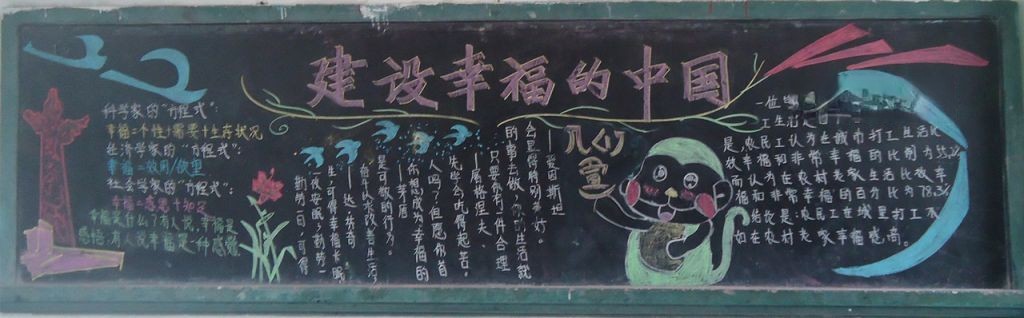 建设幸福的中国
科学家的“方程式”:
幸福=个性+需要+生存状况
经济学家的“方程式”:
幸福=效用/欲望
社会学家的“方程式”:
幸福=感恩+知足
幸福是什么?有人说,幸福是
感悟;有人说幸福是一种感觉
勤劳一日,可得
一夜安眠;勤劳一
生,可得幸福长眠
——达·芬奇
奋斗以求改善生活,
是可敬的行为。
——茅盾
你想成为幸福的
人吗?但愿你首
先学会吃得起苦。
——屠格涅夫
只要你有一件合理
的事去做,你的生活就
会显得特别美好。
——爱因斯坦
儿童
一位
工生活
是,农民工认为在城市打工生活比
较幸福和非常幸福的比例为
而认为在农村老家生活比较幸
福和非常幸福的百分比为78.3%
结论是:农民工在城里打工不
如在农村老家幸福感高。